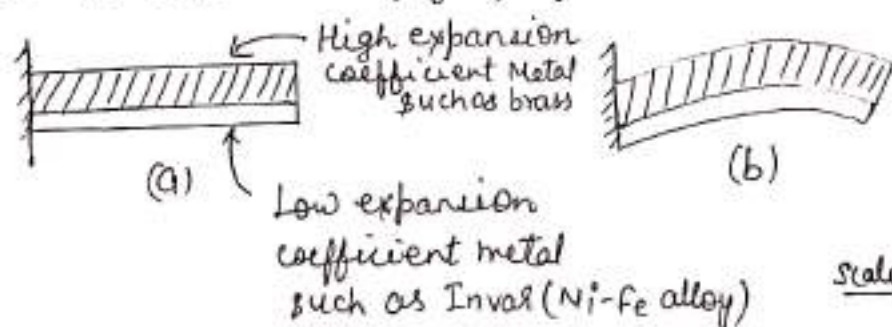 High expansion
coefficient Metal
such as brass
(a)
(b)
Low expansion
coefficient metal
such as Invar (Ni-Fe alloy)
Scale